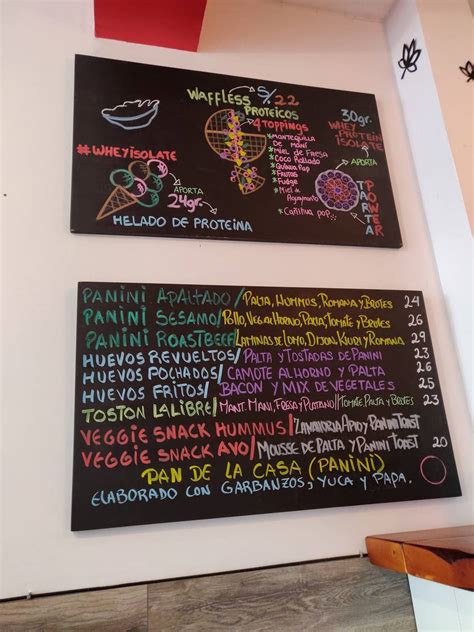 WAFFLESS S/. 22
PROTEICOS
4 TOPPINGS
*MANTEQUILLA
DE MANÍ
*MIEL DE FRESA
*COCO RALLADO
*QUINUA POP
*FRUTAS
*FUDGE
*MIEL DE
*CAÑIHUA POP...
30gr.
WHEY PROTEIN
ISOLATE
APORTA
TARTA
POWER
#WHEYISOLATE
APORTA
24gr.
HELADO DE PROTEINA
PANINI APALTADO/PALTA, HUMMUS, ROMANA Y BROTES 24
PANINI SESAMO/POLLO, VEG. AL HORNO, PALTA, TOMATE Y BROTES 26
PANINI ROASTBEEF/LAMINAS DE LOMO, DIJON, KIURI Y ROMANA 29
HUEVOS REVUELTOS/PALTA Y TOSTADAS DE PANINI 23
HUEVOS POCHADOS/CAMOTE AL HORNO Y PALTA 26
HUEVOS FRITOS/BACON Y MIX DE VEGETALES 25
TOSTON LALIBRE/MANT. MANI, FRESA Y PLATANO/TOMATE, PALTA Y BROTES 23
VEGGIE SNACK HUMMUS/ZANAHORIA APIO Y PANINI TOAST
VEGGIE SNACK AVO/MOUSSE DE PALTA Y PANINI TOAST 20
PAN DE LA CASA (PANINI)
ELABORADO CON GARBANZOS, YUCA Y PAPA.